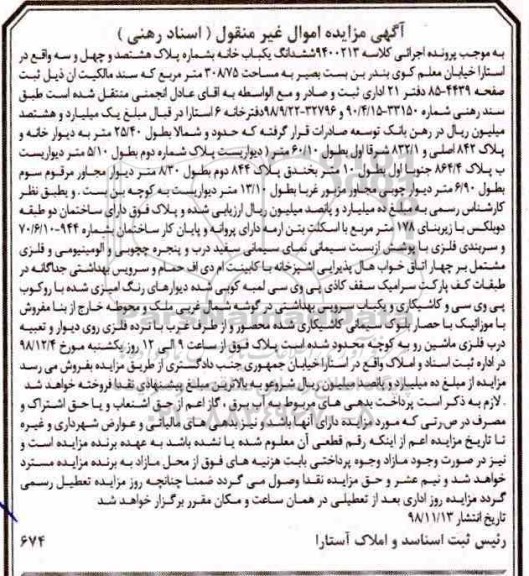 آگهی مزایده اموال غیر منقول ( اسناد رهنی )
به موجب پرونده اجرائی کلاسه ۹۴۰۰۲۱۳ششدانگ یکباب خانه بشماره پلاک هشتصد و چهل و سه واقع در
آستارا خیابان معلم کوی بندر بن بست بصیر به مساحت ۳۰۸۷۵ متر مربع که سند مالکیت آن ذیل ثبت
صفحه ۴۴۳۹-۸۵ دفتر ۲۱ اداری ثبت و صادر و مع الواسطه به آقای عادل انجمنی منتقل شده است طبق
سند رهنی شماره ۳۳۱۵۰-۹۰/۴/۱۵ و ۳۲۷۹۶-۹۸/۹/۲۲دفترخانه ۶ آستارا در قبال مبلغ یک میلیارد و هشتصد
میلیون ریال در رهن بانک توسعه صادرات قرار گرفته که حدود و شمالا بطول ۲۵/۴۰ متر به دیوار خانه و
پلاک ۸۴۲ اصلی و ۸۳۲/۱ شرقا اول بطول ۶۰/۱۰ متر ( دیواریست پلاک شماره دوم بطول ۵/۱۰ متر دیواریست
ب پلاک ۸۶۴/۴ جنوبا اول بطول ۱۰ متر بخندق پلاک ۸۴۴ دوم بطول ۸/۳۰ متر دیوار مجاور مرقوم سوم
بطول ۶/۹۰ متر دیوار چوبی مجاور مزبور غربا بطول ۱۳/۱۰ متر دیواریست به کوچه بن بست . و یطبق نظر
کارشناس رسمی به مبلغ ده میلیارد و پانصد میلیون ریال ارزیابی شده و پلاک فوق دارای ساختمان دو طبقه
دوبلکس با زیربنای ۱۷۸ متر مربع با اسکلت بتن آرمه دارای پروانه و پایان کار ساختمان بشماره ۹۴۴-۷۰/۶/۱۰
و سربندی فلزی با پوشش ازبست سیمانی نمای سیمانی سفید درب و پنجره چجوبی و آلومینیومی و فلزی
مشتمل بر چهار اتاق خواب هال پذیرایی آشپزخانه با کابینت ام دی اف حمام و سرویس بهداشتی جداگانه در
طبقات کف پارکت سرامیک سقف کاذی پی وی سی لمبه کوبی شده دیوارهای رنگ آمیزی شده با روکوب
پی وی سی و کاشیکاری و یکباب سرویس بهداشتی در گوشه شمال غربی ملک و محوطه خارج از بنا مفروش
با موزائیک با حصار بلوک سیمانی کاشیکاری شده محصور و از طرف غرب با نرده فلزی روی دیوار و تعبیه
درب فلزی ماشین رو به کوچه محدود شده است پلاک فوق از ساعت ۹ الی ۱۲ روز یکشنبه مورخ ۹۸/۱۲/۴
در اداره ثبت اسناد و املاک واقع در آستارا خیابان جمهوری جنب دادگستری از طریق مزایده بفروش می رسد
مزایده از مبلغ ده میلیارد و پانصد میلیون ریال شروع و به بالاترین مبلغ پیشنهادی نقدا فروخته خواهد شد
. لازم به ذکر است پرداخت بدهی های مربوط به آب برق ، گاز اعم از حق انشعاب و یا حق اشتراک و
مصرف در صرتی که مورد مزایده دارای آنها باشد و نیز بدهی های مالیاتی و عوارض شهرداری و غیره
تا تاریخ مزایده اعم از اینکه رقم قطعی آن معلوم شده یا نشده باشد به عهده برنده مزایده است و
نیز در صورت وجود مازاد وجوه پرداختی بابت هزینه های فوق از محل مازاد به برنده مزایده مسترد
خواهد شد و نیم عشر و حق مزایده نقدا وصول می گردد ضمنا چنانچه روز مزایده تعطیل رسمی
گردد مزایده روز اداری بعد از تعطیلی در همان ساعت و مکان مقرر برگزار خواهد شد
تاریخ انتشار ۹۸/۱۱/۱۳
رئیس ثبت اسناسد و املاک آستارا
۶۷۴